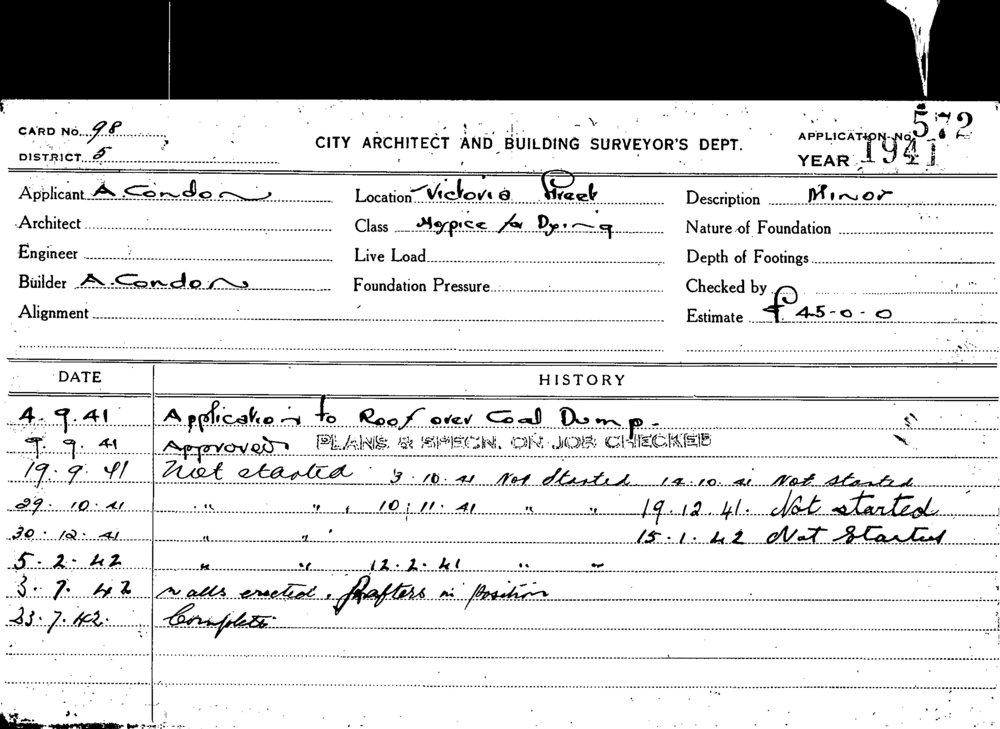 CARD No. 98
DISTRICT 5
CITY ARCHITECT AND BUILDING SURVEYOR'S DEPT.
APPLICATION No. 572
YEAR 1941
Applicant A. Condon Location Victoria Street Description Minor
Architect Class Hospice for Dying Nature of Foundation
Engineer Live Load Depth of Footings
Builder A. Condon Foundation Pressure Checked by
Alignment Estimate £45-0-0
DATE HISTORY
4.9.41 Application to Roof over Coal Dump.
9.9.41 Approved PLANS & SPECN. ON JOB CHECKED
19.9.41 Not started 3.10.41 Not Started 14.10.41 Not started
29.10.41 " " 10.11.41 " " 19.12.41. Not started
30.12.41 " " 15.1.42 Not Started
5.2.42 " " 12.2.41 " "
3.7.42 walls erected. Rafters in position
23.7.42. Complete